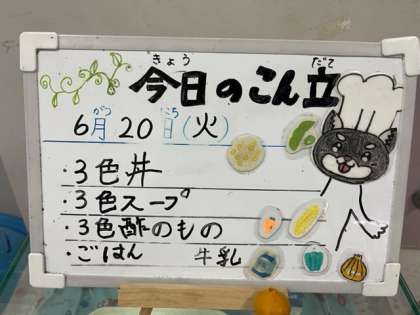 今日のこん立
きょう だて
6月20日(火)
がつ にち
・3色丼
・3色スープ
・3色酢のもの
・ごはん 牛乳